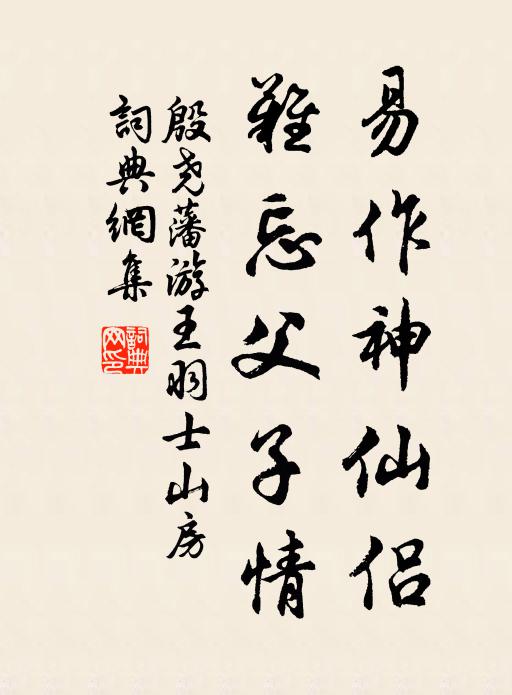 易作神仙侣
難忘父子情
殷尧藩游王羽士山房
詞典網集
詞典网印